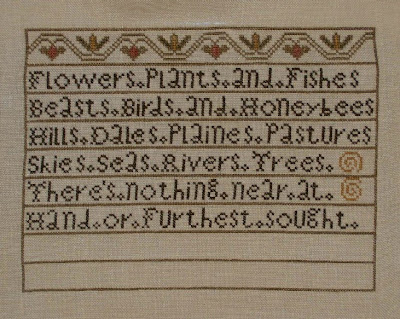 Flowers.Plants.and.Fishes
Beasts.Birds.and.Honeybees
Hills.Dales.Plaines.Pastures
Skies.Seas.Rivers.Trees.
There's.nothing.near.at.
Hand.or.Furthest.sought.